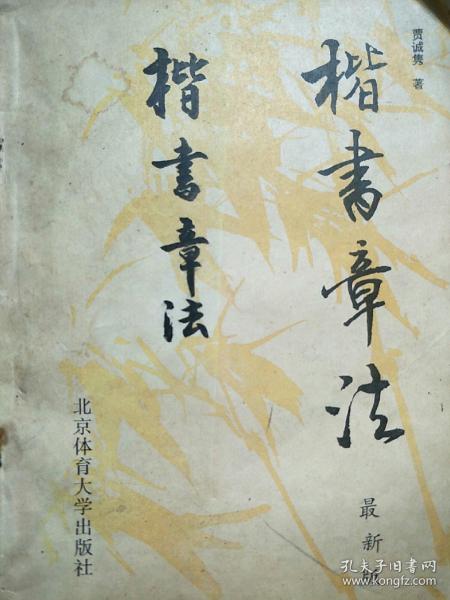 贾诚隽 著
楷书章法
最新
楷书章法
北京体育大学出版社
孔夫子旧书网